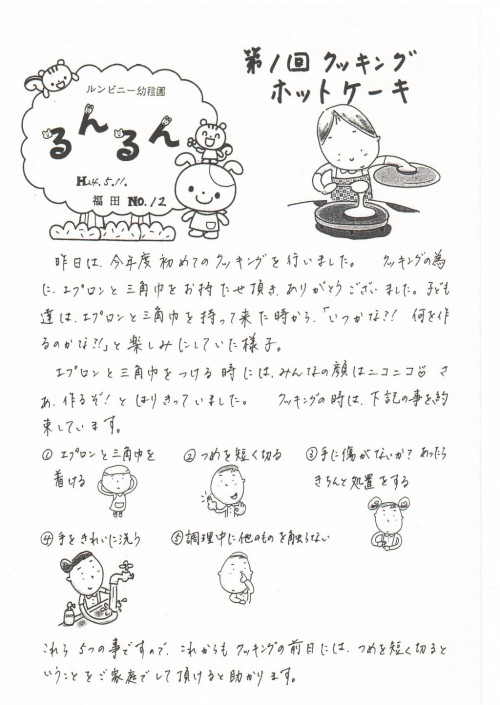 第1回 クッキング
ホットケーキ
ルンビニー幼稚園
るんるん
H24.5.11.
福田 No.12
昨日は、今年度初めてのクッキングを行いました。 クッキングの為
に、エプロンと三角巾をお持たせ頂き、ありがとうございました。子ども
達は、エプロンと三角巾を持って来た時から、「いつかな?! 何を作
るのかな?!」と楽しみにしていた様子。
エプロンと三角巾をつける時には、みんなの顔はニコニコ☺ さ
あ、作るぞ!とはりきっていました。 クッキングの時は、下記の事を約
束しています。
① エプロンと三角巾を
着ける
② つめを短く切る
③ 手に傷がないか?あったら
きちんと処置をする
④ 手をきれいに洗う
⑤ 調理中に他のものを触らない
これら5つの事ですので、これからもクッキングの前日には、つめを短く切ると
いうことをご家庭でして頂けると助かります。